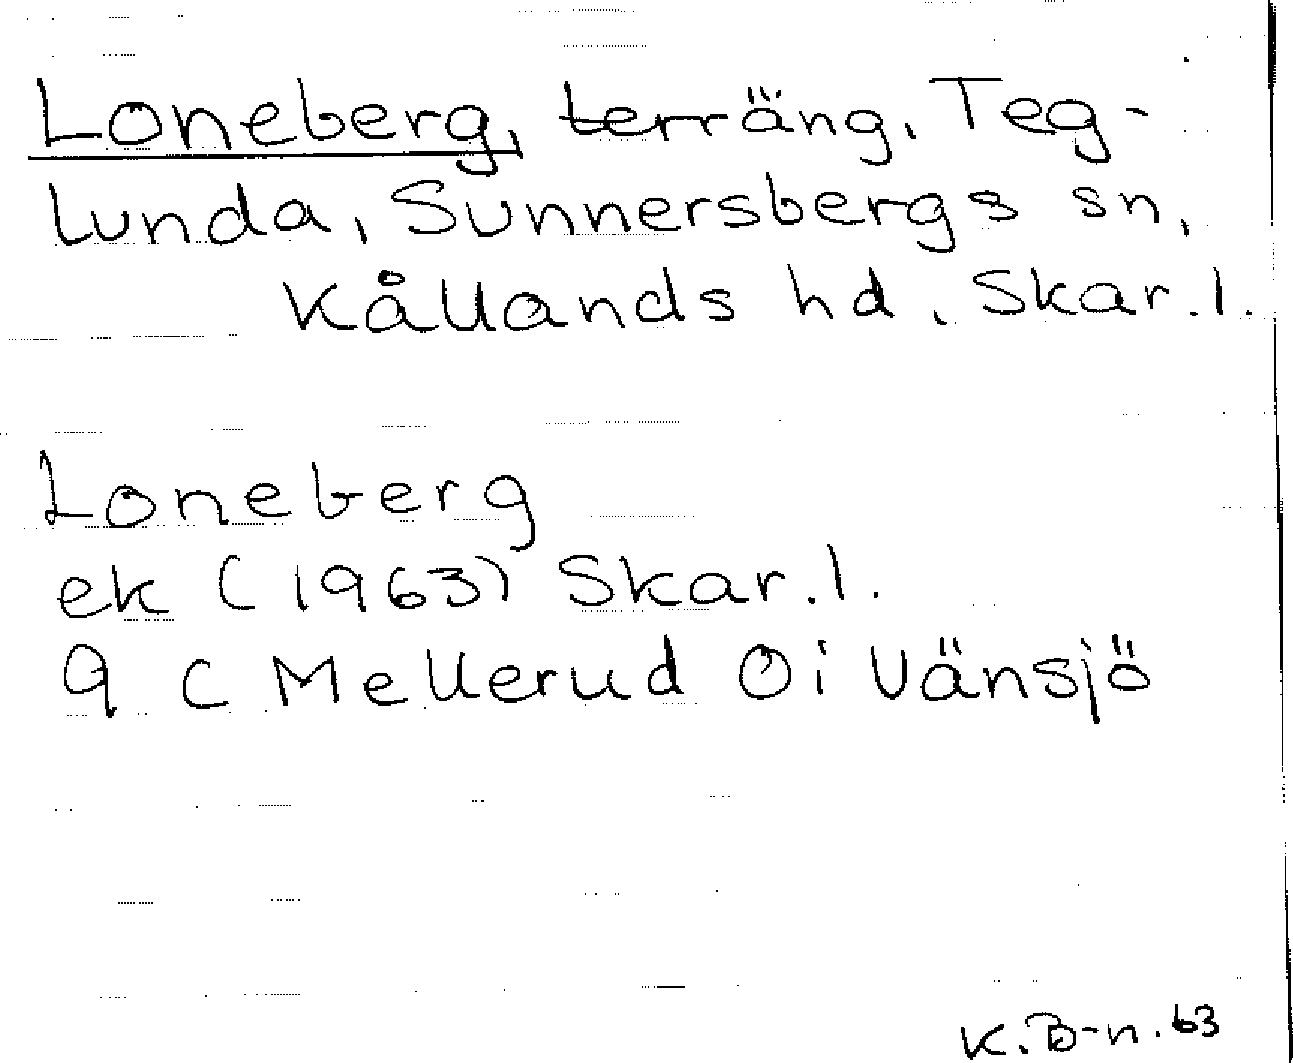 Loneberg, terräng, Teg-
lunda, Sunnersbergs sn,
Kållands hd, Skar.l.
Loneberg
ek (1963) Skar.l.
9 C Mellerud Öi Vänsjö
K.B-n.63